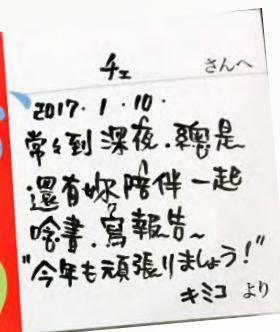 チェ さんへ
2017.1.10.
常々到深夜.總是
還有妳陪伴一起
唸書.寫報告~
"今年も頑張りましょう!"
キミコ より